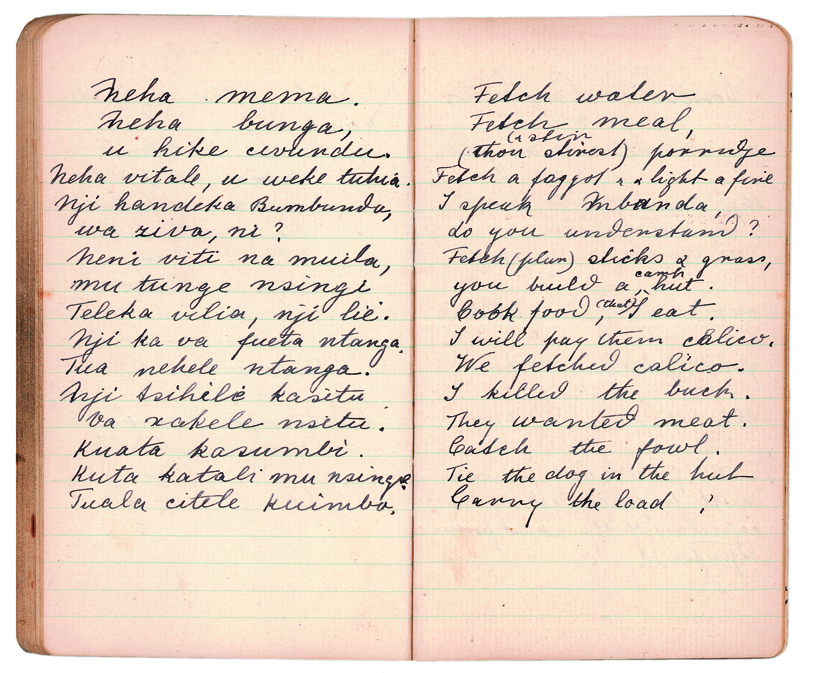 Neha mema.
Neha bunga,
u hike civundu.
Neha vitale, u weke tuhia.
Nji handeka Bumbunda,
wa ziva, ni?
Neni viti na muila,
mu tunge nsingi
Teleka vilia, nji lie.
Nji ka va fueta ntanga.
Tua nehele ntanga.
Nji tsihile kasitu
va xakele nsitu.
Kuata kasumbi.
Kuta katali mu nsinge
Tuala citele kuimbo.
Fetch water
Fetch meal,
(& stir
(thou stirest) porridge
Fetch a faggot & light a fire
I speak Mbunda,
do you understand?
Fetch (plur) sticks & grass,
camp
you build a hut.
Cook food, (that) I eat.
I will pay them calico.
We fetched calico.
I killed the buck.
They wanted meat.
Catch the fowl.
Tie the dog in the hut
Carry the load ?